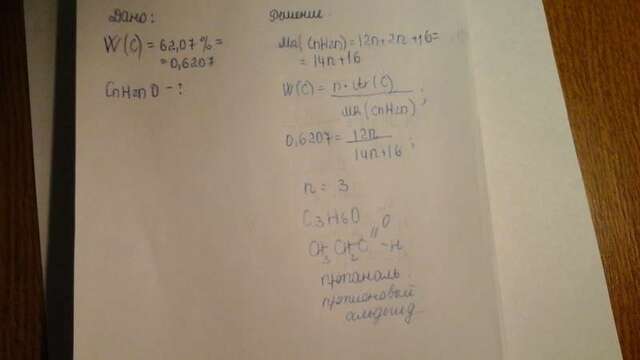 Дано:
W(C) = 62,07 % =
= 0,6207
CnH2nO - ?
Решение
Mr(CnH2n) = 12n + 2n + 16 =
= 14n + 16
W(C) = n · Ar(C) / Mr(CnH2n) ;
0,6207 = 12n / 14n + 16 ;
n = 3
C3H6O
O
CH3 CH2 C - H
пропаналь
пропионовый
альдегид